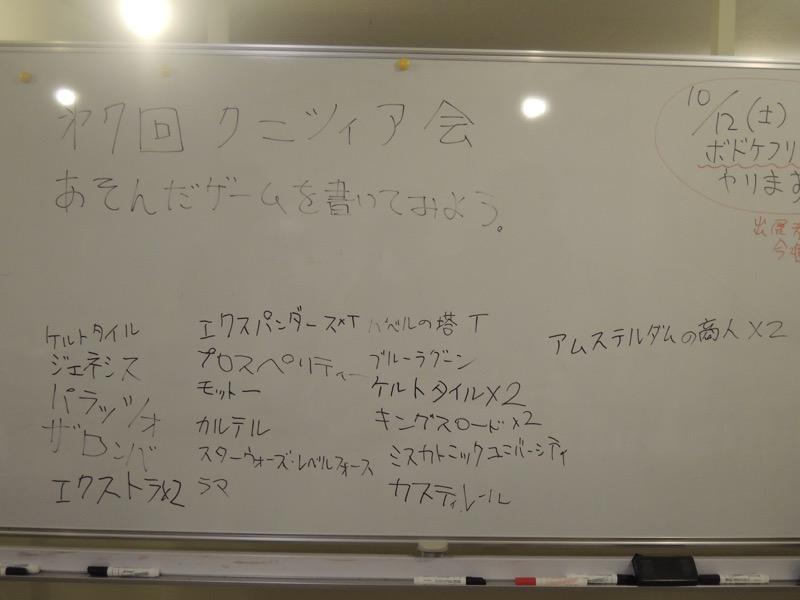 第7回 クニツィア会
あそんだゲームを書いてみよう。
10/12(土)
ボドゲフリ
やります
出展
今
ケルトタイル
ジェネシス
パラッツォ
ザロンバ
エクストラx2
エクスパンダーズxT
プロスペリティー
モットー
カルテル
スターウォーズ・レベルフォース
ラマ
バベルの塔 T
ブルーラグーン
ケルトタイルX2
キングスロードx2
ミスカトニックユニバーシティ
カスティレール
アムステルダムの商人X2